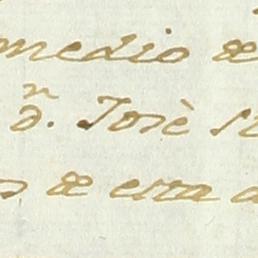 medio de
dⁿ. Josè
de esta